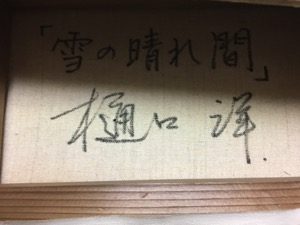 「雪の晴れ間」
樋口 洋.